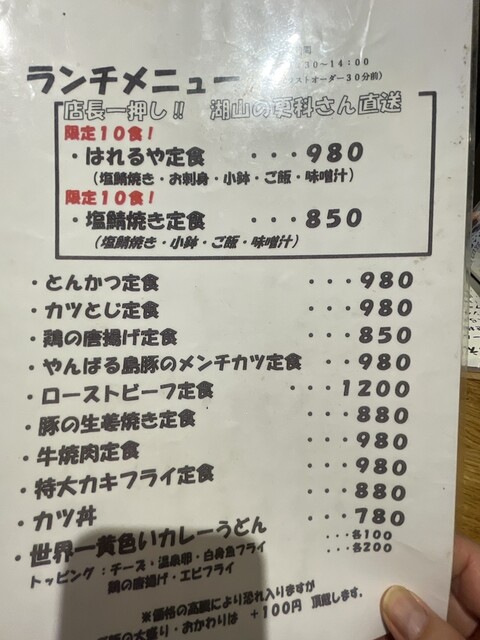 ランチメニュー
30～14:00
ストオーダー30分前)
店長一押し!! 湖山の更科さん直送
限定10食!
・はれるや定食 ・・・980
(塩鯖焼き・お刺身・小鉢・ご飯・味噌汁)
限定10食!
・塩鯖焼き定食 ・・・850
(塩鯖焼き・小鉢・ご飯・味噌汁)
・とんかつ定食 ・・・980
・カツとじ定食 ・・・980
・鶏の唐揚げ定食 ・・・850
・やんばる島豚のメンチカツ定食 ・・・980
・ローストビーフ定食 ・・・1200
・豚の生姜焼き定食 ・・・880
・牛焼肉定食 ・・・980
・特大カキフライ定食 ・・・980
・カツ丼 ・・・880
・世界一黄色いカレーうどん ・・・780
トッピング:チーズ・温泉卵・白身魚フライ ・・・各100
鶏の唐揚げ・エビフライ ・・・各200
※価格の高騰により恐れ入りますが
の大盛り・おかわりは +100円 頂戴します。